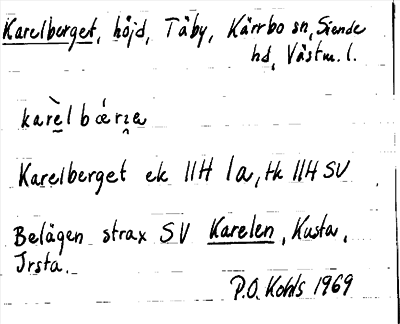 Karelberget, höjd, Täby, Kärrbo sn, Siende
hd, Västm. l.
karè̲l bǽrıa
Karelberget ek 11H 1a, tk 11H SV
Belägen strax SV Karelen, Kusta,
Irsta.
P.O. Kohls 1969